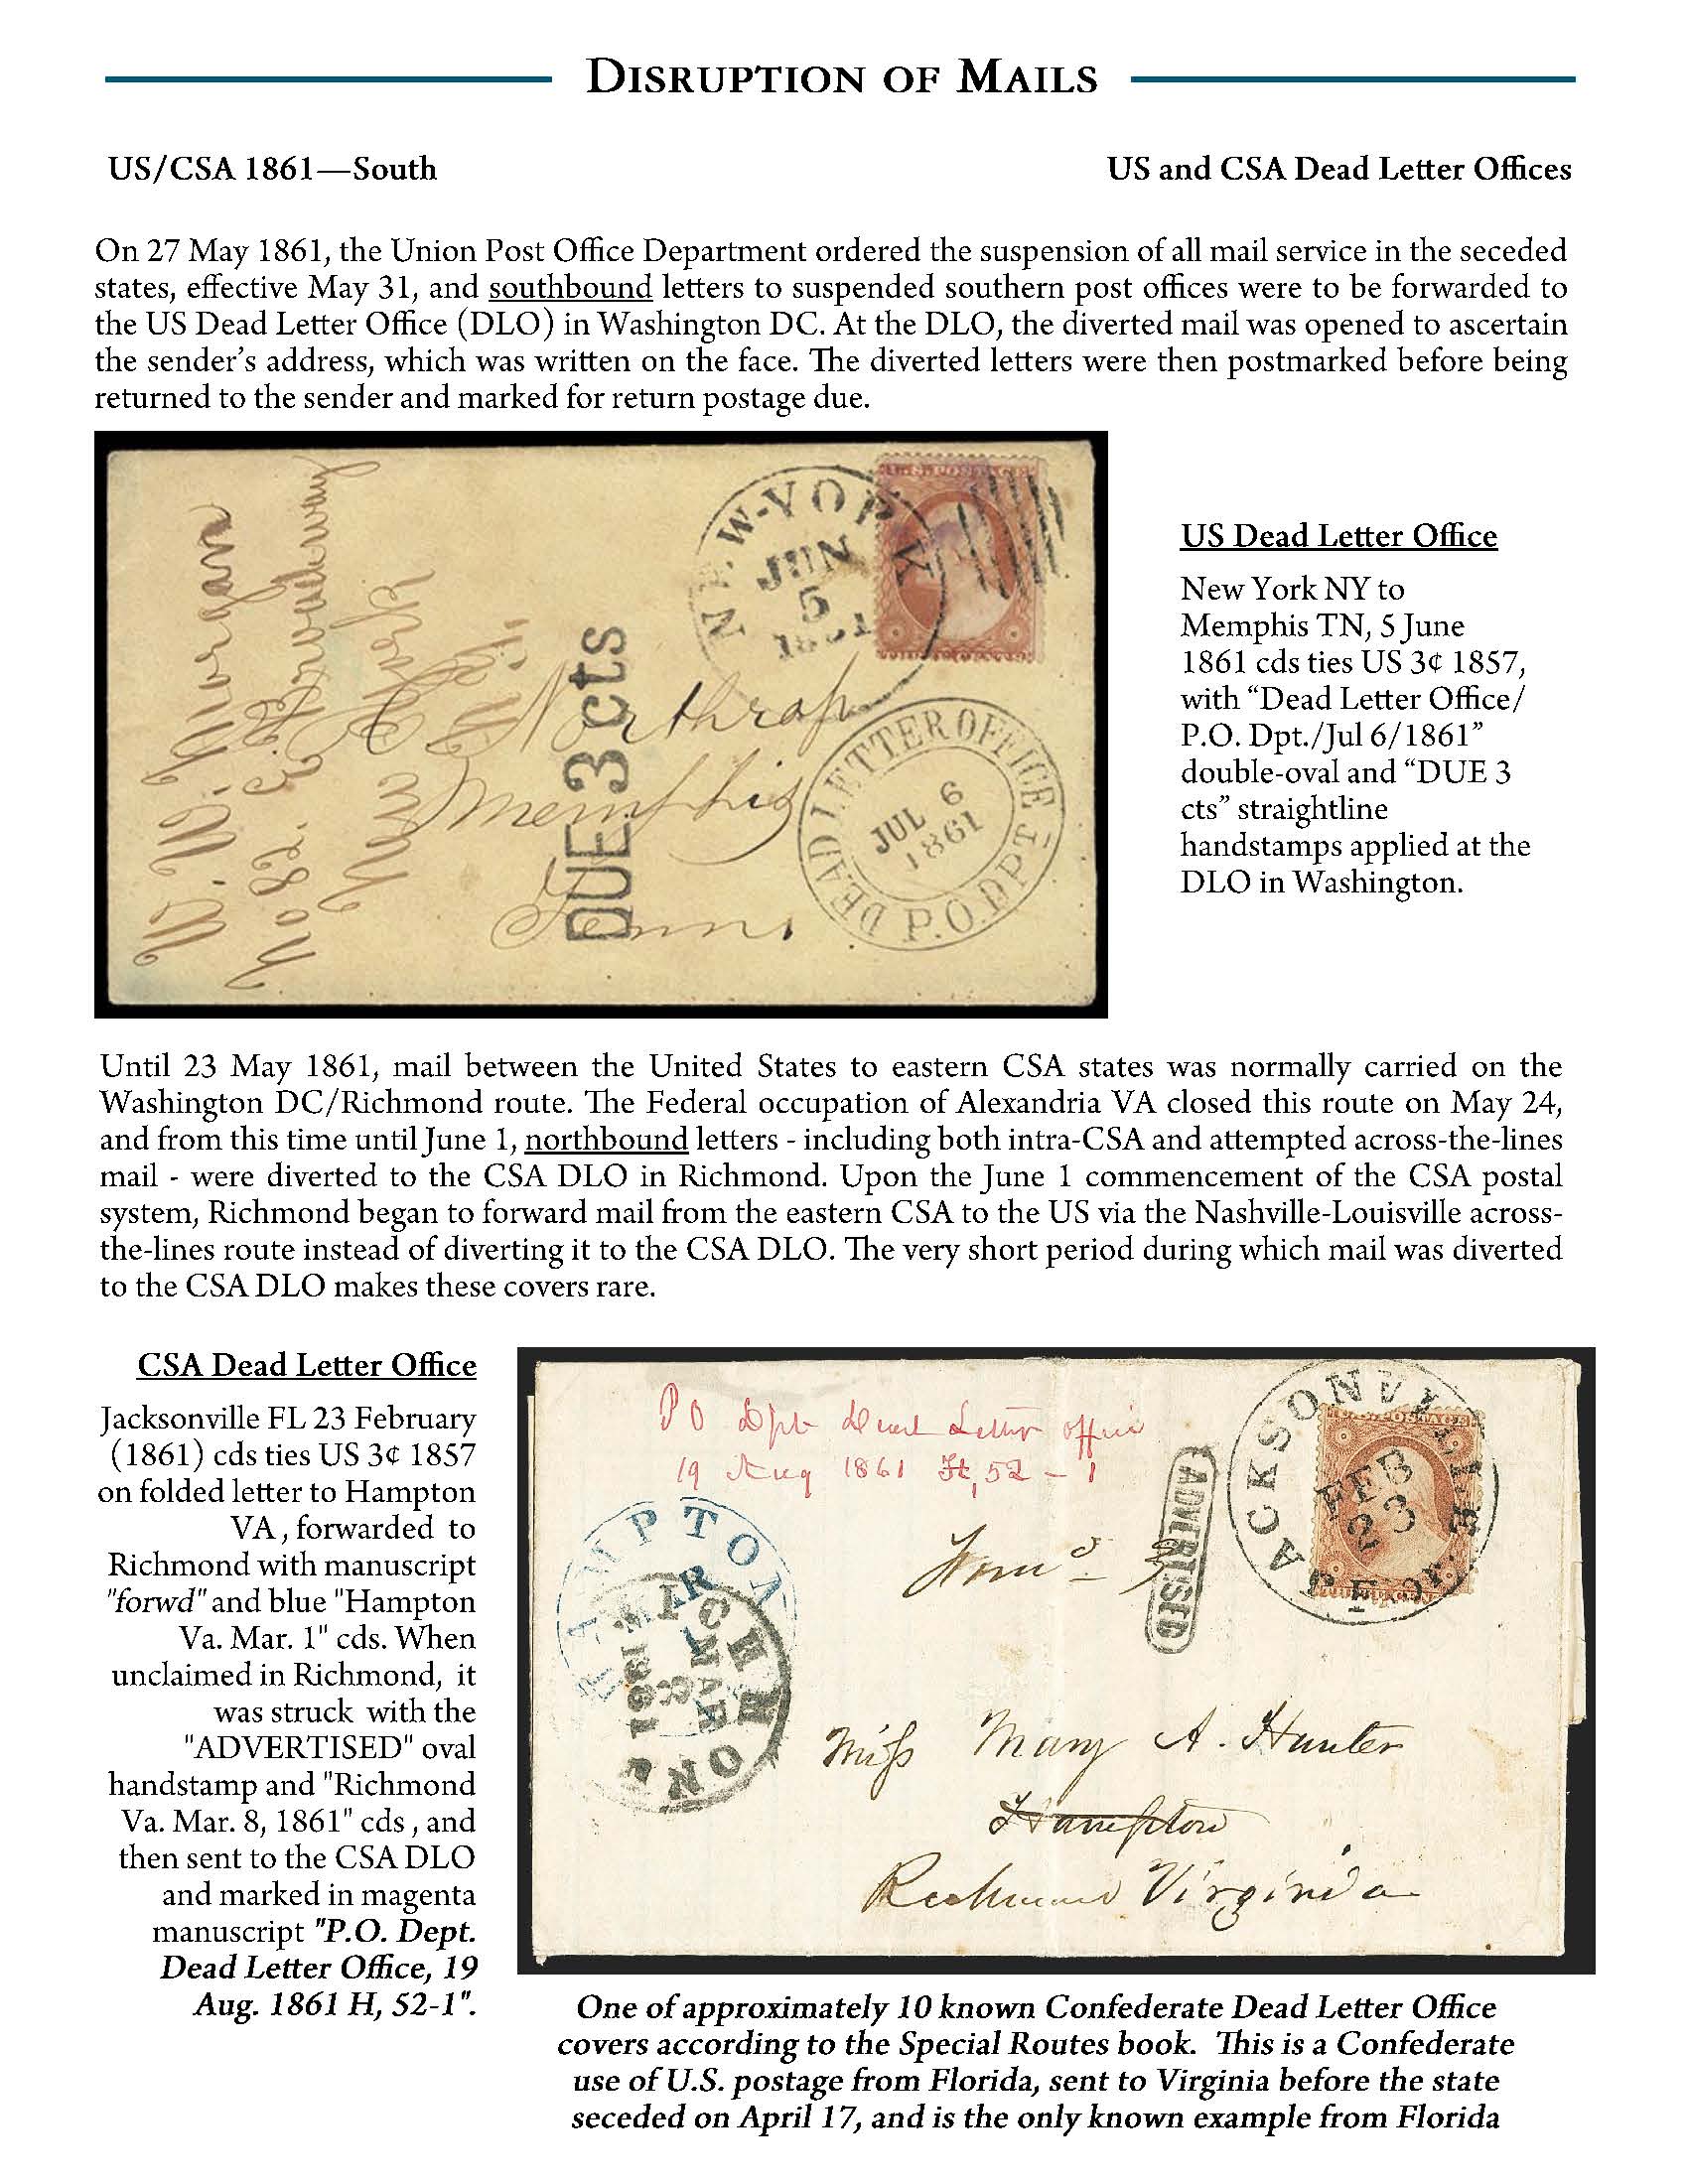 DISRUPTION OF MAILS
US/CSA 1861—South
US and CSA Dead Letter Offices
On 27 May 1861, the Union Post Office Department ordered the suspension of all mail service in the seceded
states, effective May 31, and southbound letters to suspended southern post offices were to be forwarded to
the US Dead Letter Office (DLO) in Washington DC. At the DLO, the diverted mail was opened to ascertain
the sender's address, which was written on the face. The diverted letters were then postmarked before being
returned to the sender and marked for return postage due.
W. W. Morgan
No 82. Broadway
New York
NEW-YORK
JUN
5
1861
DUE 3 cts
Northrap
Memphis
Tenn.
DEAD LETTER OFFICE
JUL 6
1861
P.O. DPT.
US Dead Letter Office
New York NY to
Memphis TN, 5 June
1861 cds ties US 3¢ 1857,
with “Dead Letter Office/
P.O. Dpt./Jul 6/1861”
double-oval and “DUE 3
cts” straightline
handstamps applied at the
DLO in Washington.
Until 23 May 1861, mail between the United States to eastern CSA states was normally carried on the
Washington DC/Richmond route. The Federal occupation of Alexandria VA closed this route on May 24,
and from this time until June 1, northbound letters - including both intra-CSA and attempted across-the-lines
mail - were diverted to the CSA DLO in Richmond. Upon the June 1 commencement of the CSA postal
system, Richmond began to forward mail from the eastern CSA to the US via the Nashville-Louisville across-
the-lines route instead of diverting it to the CSA DLO. The very short period during which mail was diverted
to the CSA DLO makes these covers rare.
CSA Dead Letter Office
Jacksonville FL 23 February
(1861) cds ties US 3¢ 1857
on folded letter to Hampton
VA , forwarded to
Richmond with manuscript
"forwd" and blue "Hampton
Va. Mar. 1" cds. When
unclaimed in Richmond, it
was struck with the
"ADVERTISED" oval
handstamp and "Richmond
Va. Mar. 8, 1861" cds , and
then sent to the CSA DLO
and marked in magenta
manuscript "P.O. Dept.
Dead Letter Office, 19
Aug. 1861 H, 52-1".
P O Dpt Dead Letter office
19 Aug 1861 H, 52 - 1
HAMPTON
MAR
1
RICHMOND
MAR
8
1861
Forwd 3
ADVERTISED
JACKSONVILLE
FEB
23
Miss Mary A. Hunter
Hampton
Richmond Virginia
One of approximately 10 known Confederate Dead Letter Office
covers according to the Special Routes book. This is a Confederate
use of U.S. postage from Florida, sent to Virginia before the state
seceded on April 17, and is the only known example from Florida